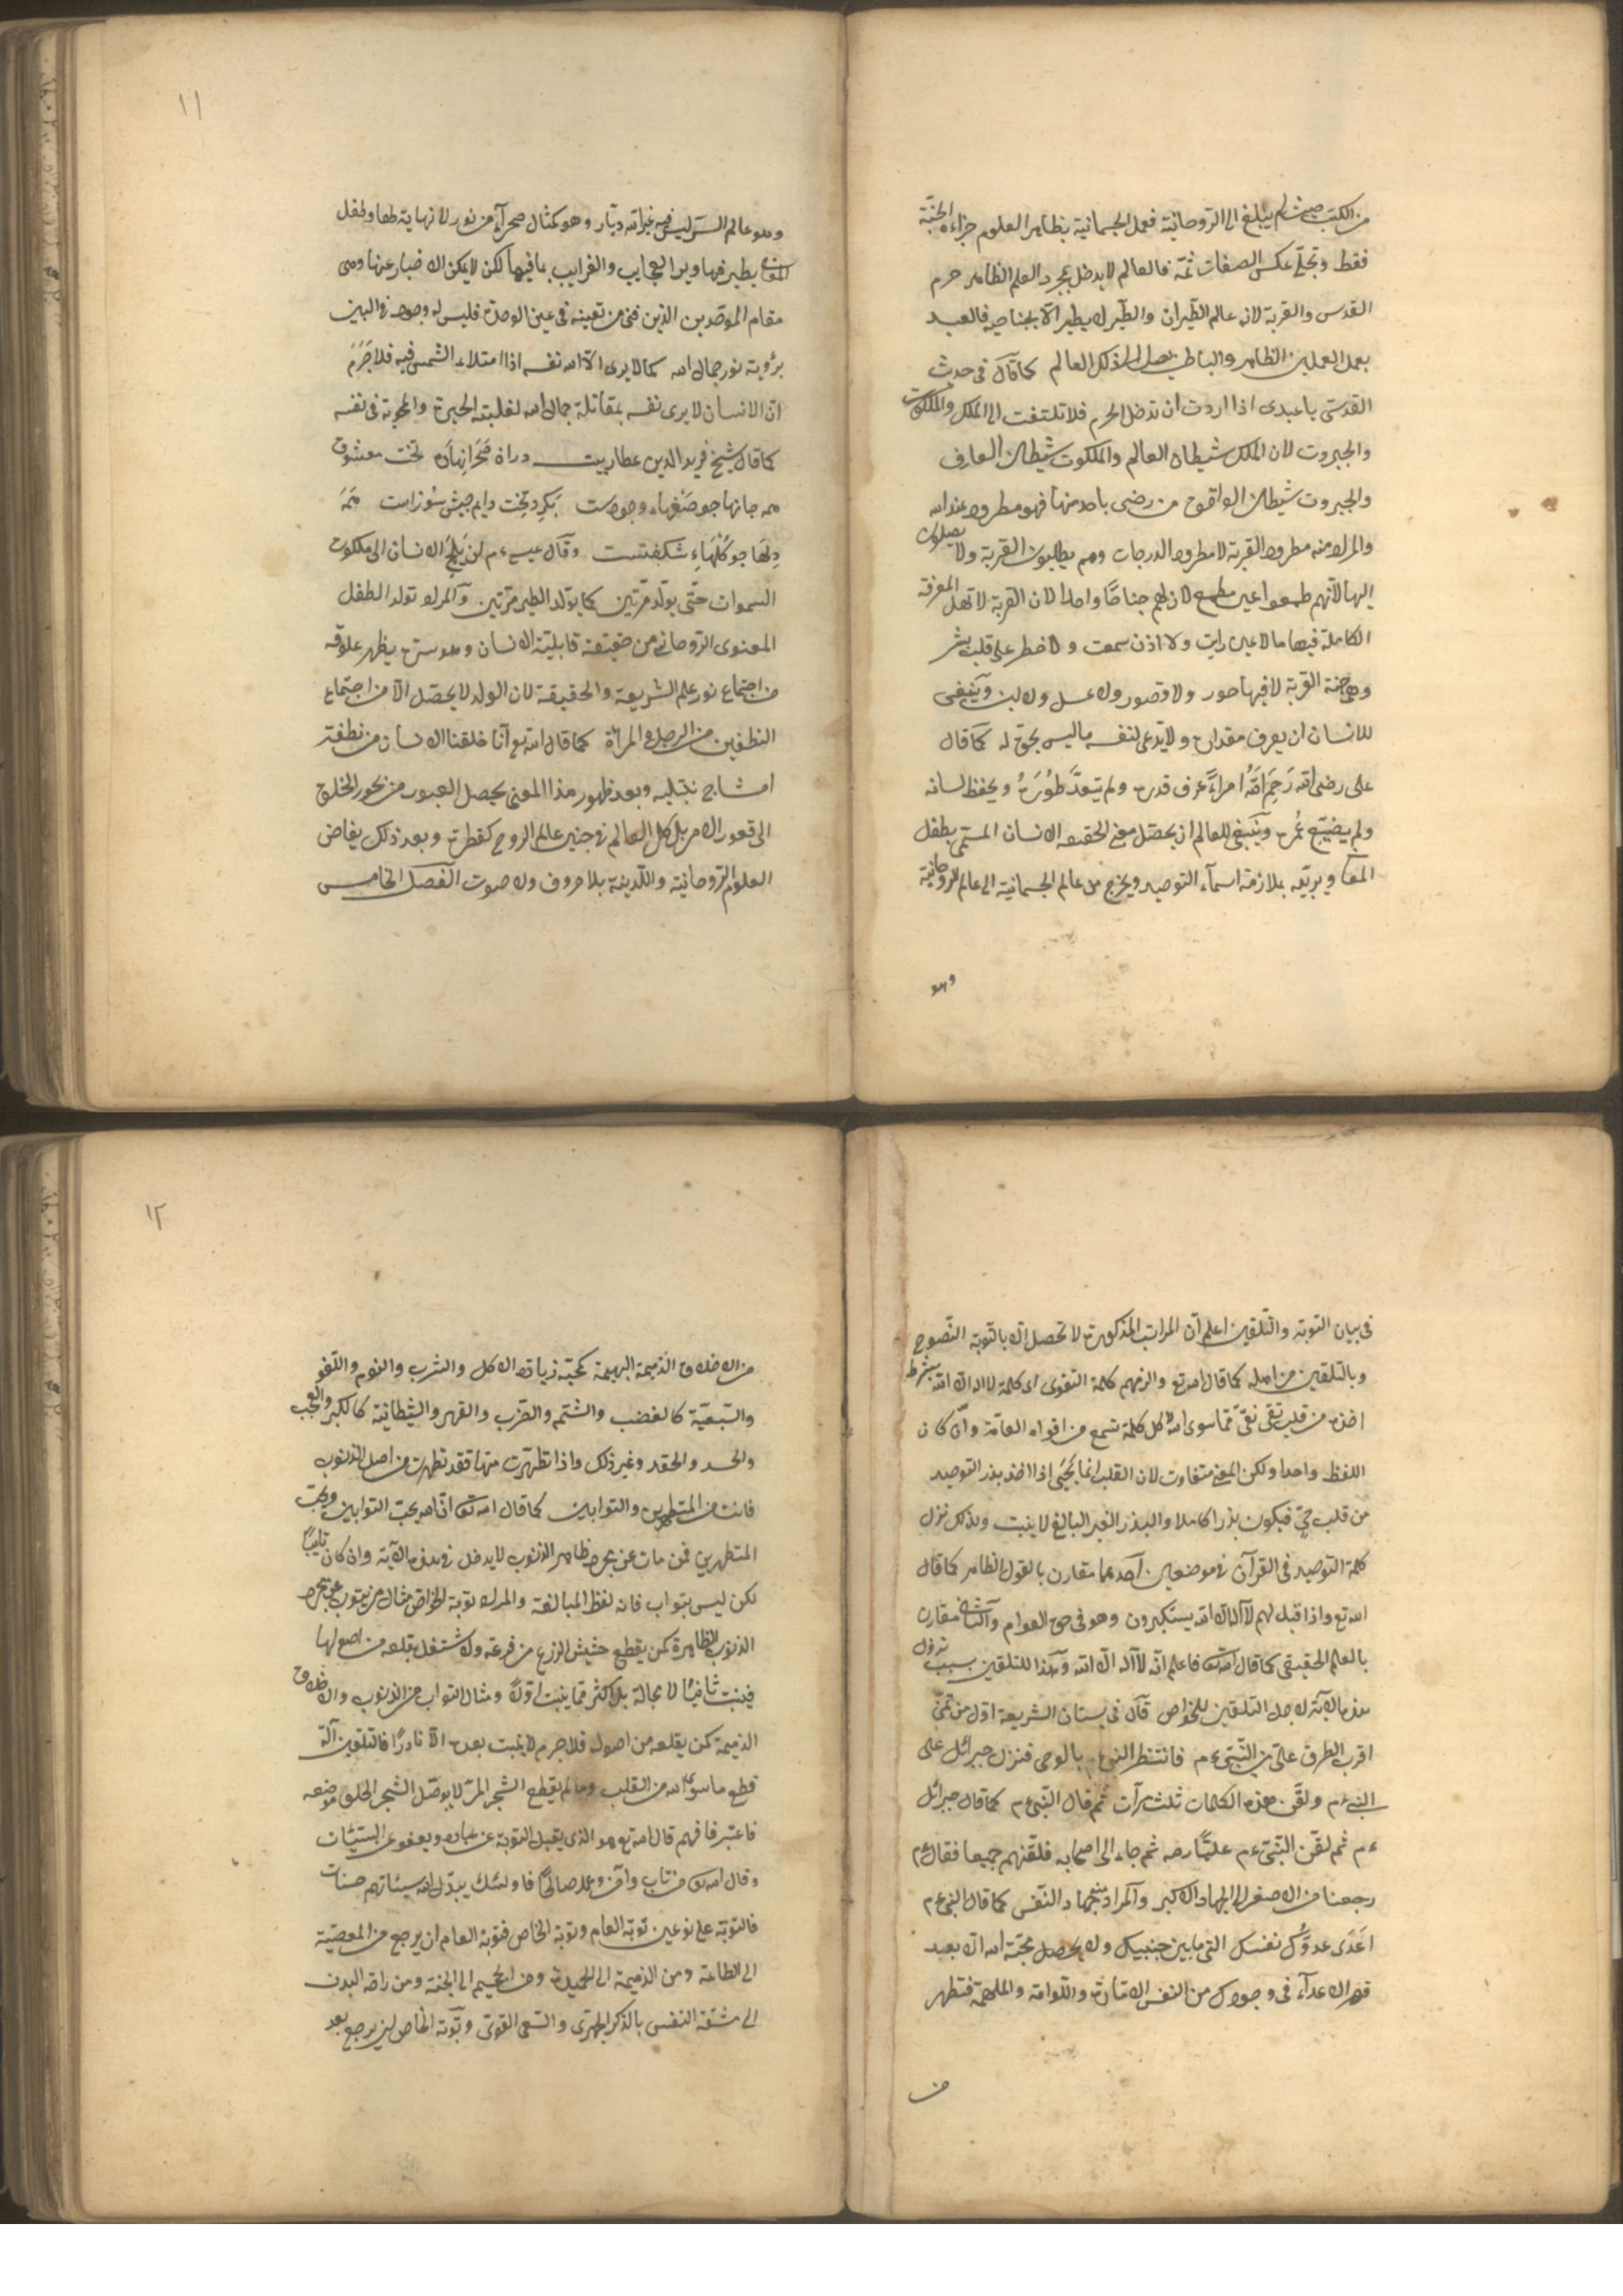 من الكتب حيث لم يبلغ الى الروحانية فعمل الجسمانية بظاهر العلوم جزاءه الجنة
فقط وتجلى عكس الصفات ثمة فالعالم لا يدخل بمجرد العلم الظاهر حرم
القدس والقربة لانه عالم الطيران والطير لا يطير الا بجناحيه فالعبد
يعمل العملين الظاهر والباطن يصل الى ذلك العالم كما قال فى حديث
القدسى يا عبدى اذا اردت ان تدخل الحرم فلا تلتفت الى الملك والملكوت
والجبروت لان الملك شيطان العالم والملكوت شيطان العارف
والجبروت شيطان الواقف من رضى باحد منها فهو مطرود عند الله
والمراد منه مطرود القربة لا مطرود الدرجات وهم يطلبون القربة ولا يصلون
اليها لانهم طمعوا غير مطمع لان لهم جناحا واحدا لان القربة لاهل المعرفة
الكاملة فيها ما لا عين رات ولا اذن سمعت ولا خطر على قلب بشر
وهى جنة القربة لا فيها حور ولا قصور ولا عسل ولا لبن وينبغى
للانسان ان يعرف مقداره ولا يدعى لنفسه ما ليس بحق له كما قال
على رضى الله رَحِمَ اللهُ امراءً عرف قدره ولم يتعدَّ طَوْرَهُ ويحفظ لسانه
ولم يضيّع عُمره وينبغى للعالم ان يحصل معنى الحقيقة الانسان المسمى بطفل
المعانى ويربيه بملازمة اسماء التوحيد ويخرج من عالم الجسمانية الى عالم الروحانية
وهو
١١
وهو عالم السر ليس فيه غير الله ديار وهو كمثال صحراء من نور لا نهاية لها وطفل
المعانى يطير فيها ويرا العجايب والغرايب بما فيها لكن لا يمكن الاخبار عنها وهى
مقام الموحدين الذين فنى من تعينه فى عين الوحدة فليس له وجود فى البين
برؤية نور جمال الله كما لا يرى الا الله نفسه اذا امتلاء الشمس فيه فلا جَرَمَ
ان الانسان لا يرى نفسه بمقابلة جمال الله لغلبة الحيرة والمحوية فى نفسه
كما قال شيخ فريد الدين عطار بيت
وقال عيسى ءم لن يَلِجَ الانسان الى ملكوت
السموات حتى يولد مرتين كما يولد الطير مرتين والمراد تولد الطفل
المعنوى الروحانى من حقيقة قابلية الانسان وهو سره يظهر علوقه
من اجتماع نور علم الشريعة والحقيقة لان الولد لا يحصل الا من اجتماع
النطفتين من الرجل و المرأة كما قال الله تع انا خلقنا الانسان من نطفة
امشاج نبتليه وبعد ظهور هذا المعنى يحصل العبور من بحور الخلق
الى قعور الامر بل كل العالم فى جنب عالم الروح كقطرة وبعد ذلك يفاض
العلوم الروحانية واللدينة بلا حروف ولا صوت الفصل الخامس
فى بيان التوبة والتلقين اعلم ان المراتب المذكورة لا تحصل الا بالتوبة النصوح
وبالتلقين من اهله كما قال الله تع والزمهم كلمة التقوى اى كلمة لا اله الا الله بشرط
اخذه من قلب تقى نقى مما سوى الله لا كل كلمة تسمع من افواه العامة وان كان
اللفظ واحدا ولكن المعنى متفاوت لان القلب انما يَحْيَى اذا اخذ بذر التوحيد
من قلب حى فيكون بذرا كاملا والبذر الغير البالغ لا ينبت ولذلك نزل
كلمة التوحيد فى القرآن فى موضعين احدهما مقارن بالقول الظاهر كما قال
الله تع واذا قيل لهم لا اله الا الله يستكبرون وهو فى حق العوام والثانى مقارن
بالعلم الحقيقى كما قال الله تعا فاعلم انه لا اله الا الله وهذا للتلقين سبب نزول
هذه الآية لاجل التلقين للخواص قال فى بستان الشريعة اول من تمنى
اقرب الطرق على من النبى ءم فانتظر النبى بالوحى فنزل جبرائل على
النبى ءم ولقن هذه الكلمات ثلث مرآت ثم قال النبى ءم كما قال جبرائل
ءم ثم لقن النبى ءم عليًا رضه ثم جاء الى اصحابه فلقنهم جميعا فقال ءم
رجعنا من الاصغر الى الجهاد الاكبر والمراد منه جهاد النفس كما قال النبى ءم
اعدى عدوك نفسك التى ما بين جنبيك ولا يحصل محبة الله الا بعد
قهر الاعداء فى وجودك من النفس الامارة واللوامة والملهمة فتطهر
من
١٢
من الاخلاق الذميمة البهيمة كمحبة زيادة الاكل والشرب والنوم واللغو
والسبعية كالغضب والشتم والضرب والقهر والشيطانية كالكبر والعجب
والحسد والحقد وغير ذلك واذا تطهرت منها فقد تطهرت من اصل الذنوب
فانت من المتطهرين والتوابين كما قال الله تعا ان الله يحب التوابين ويحب
المتطهرين فمن مات عن مجرد ظاهر الذنوب لا يدخل فى هذه الآية وان كان تايبًا
لكن ليس بتواب فانه لفظ المبالغة والمراد توبة الخواص مثال من يتوب عن مجرد
الذنوب الظاهرة كمن يقطع حشيش الزرع من فرعه ولا يشتغل بقلعه من اصولها
فينبت ثانيًا لا محالة بل اكثر مما ينبت اولًا ومثال التواب من الذنوب والاخلاق
الذميمة كمن يقلعه من اصوله فلا جرم لا ينبت بعده الا نادرًا فالتلقين آلة
قطع ما سوى الله من القلب وما لم يقطع الشجر المر لا يوصّل الشجر الحلو موضعه
فاعتبر فافهم قال الله تع وهو الذى يقبل التوبة عن عباده ويعفو عن السيئات
وقال الله تعا من تاب وآمن وعمل صالحًا فاولئك يبدل الله سيئاتهم حسنات
فالتوبة على نوعين توبة العام وتوبة الخاص فتوبة العام ان يرجع من المعصية
الى الطاعة ومن الذميمة الى الحميدة ومن الجحيم الى الجنة ومن راحة البدن
الى مشقة النفس بالذكر الجهرى والسعى القوى وتوبة الخاص ان يرجع بعد